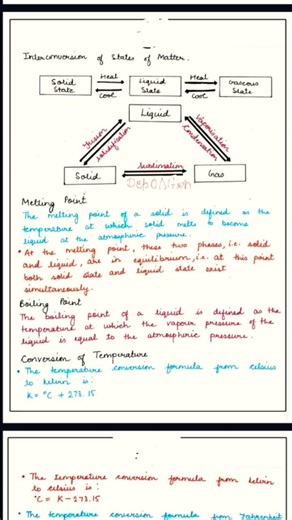 Interconversion of States of Matter.
Solid State
Heat
Cool
Liquid State
Heat
Cool
Gaseous State
Liquid
Fusion
Solidification
Vaporisation
Condensation
Solid
Sublimation
Deposition
Gas
Melting Point
The melting point of a solid is defined as the
temperature at which solid melts to become
liquid at the atmospheric pressure.
• At the melting point, these two phases, i.e. solid
and liquid, are in equilibrium, i.e. at this point
both solid state and liquid state exist
simultaneously.
Boiling Point
The boiling point of a liquid is defined as the
temperature at which the vapour pressure of the
liquid is equal to the atmospheric pressure.
Conversion of Temperature
• The temperature conversion formula from celsius
to kelvin is:
K = °C + 273.15
• The temperature conversion formula from kelvin
to celsius is:
°C = K - 273.15
• The temperature conversion formula from Fahrenheit